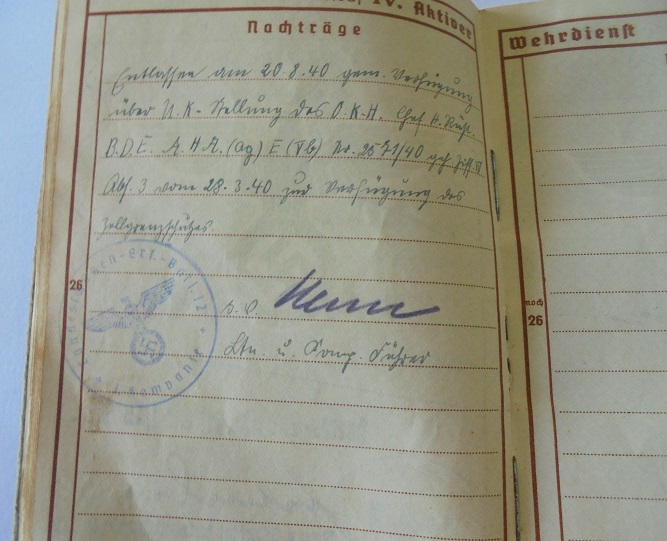 IV. Aktiver
Nachträge
Entlassen am 20.8.40 gem. Verfügung
über U.K-Stellung des O.K.H. Chef H. Rüst.
B.D.E. A.H.A. (Ag) E (Vb) Nr. 2571/40 geh. Ziff. II
Abs. 3 vom 28.3.40 zur Verfügung des
Zollgrenzschutzes
26
Ers.-Batl. 12
Kompanie
Ltn. u. Komp. Führer
Wehrdienst
noch
26